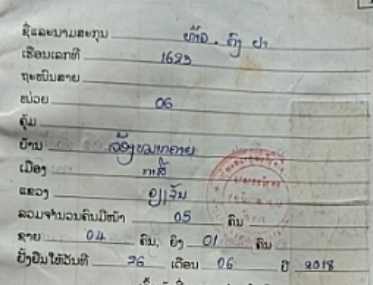 ຊື່ແລະນາມສະກຸນ ທ້າວ. ຢາ
ເຮືອນເລກທີ 1623
ຖະໜົນສາຍ
ໜ່ວຍ 06
ຄຸ້ມ
ບ້ານ
ເມືອງ ກາສີ
ແຂວງ ວຽງຈັນ
ລວມຈຳນວນຄົນມີໜ້າ 05 ຄົນ
ຊາຍ 04 ຄົນ, ຍິງ 01 ຄົນ
ຢັ້ງຢືນໃຫ້ວັນທີ 26 ເດືອນ 06 ປີ 2018